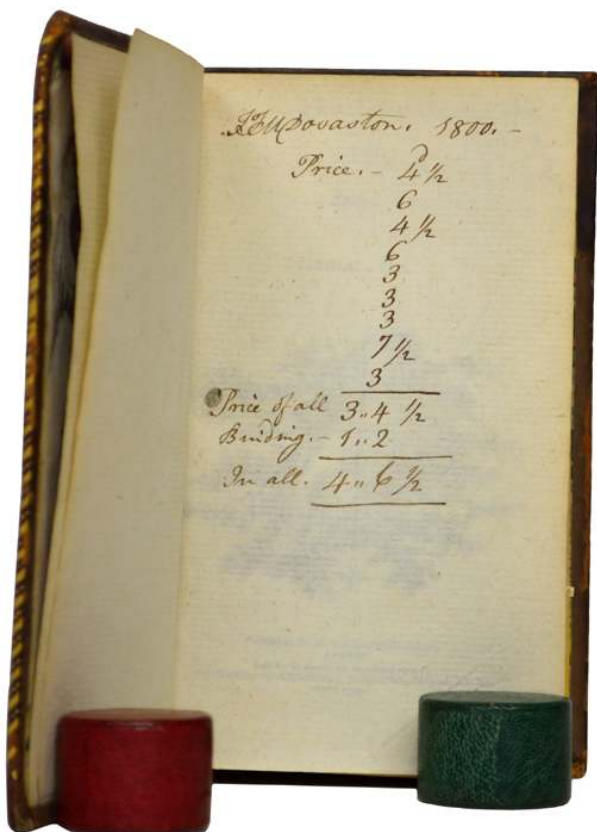 JFMDovaston. 1800. -
Price. - 4 ½
d
6
4 ½
6
3
3
3
7 ½
3
Price of all 3.,4 ½
Binding. - 1.,2
In all. 4.,6 ½